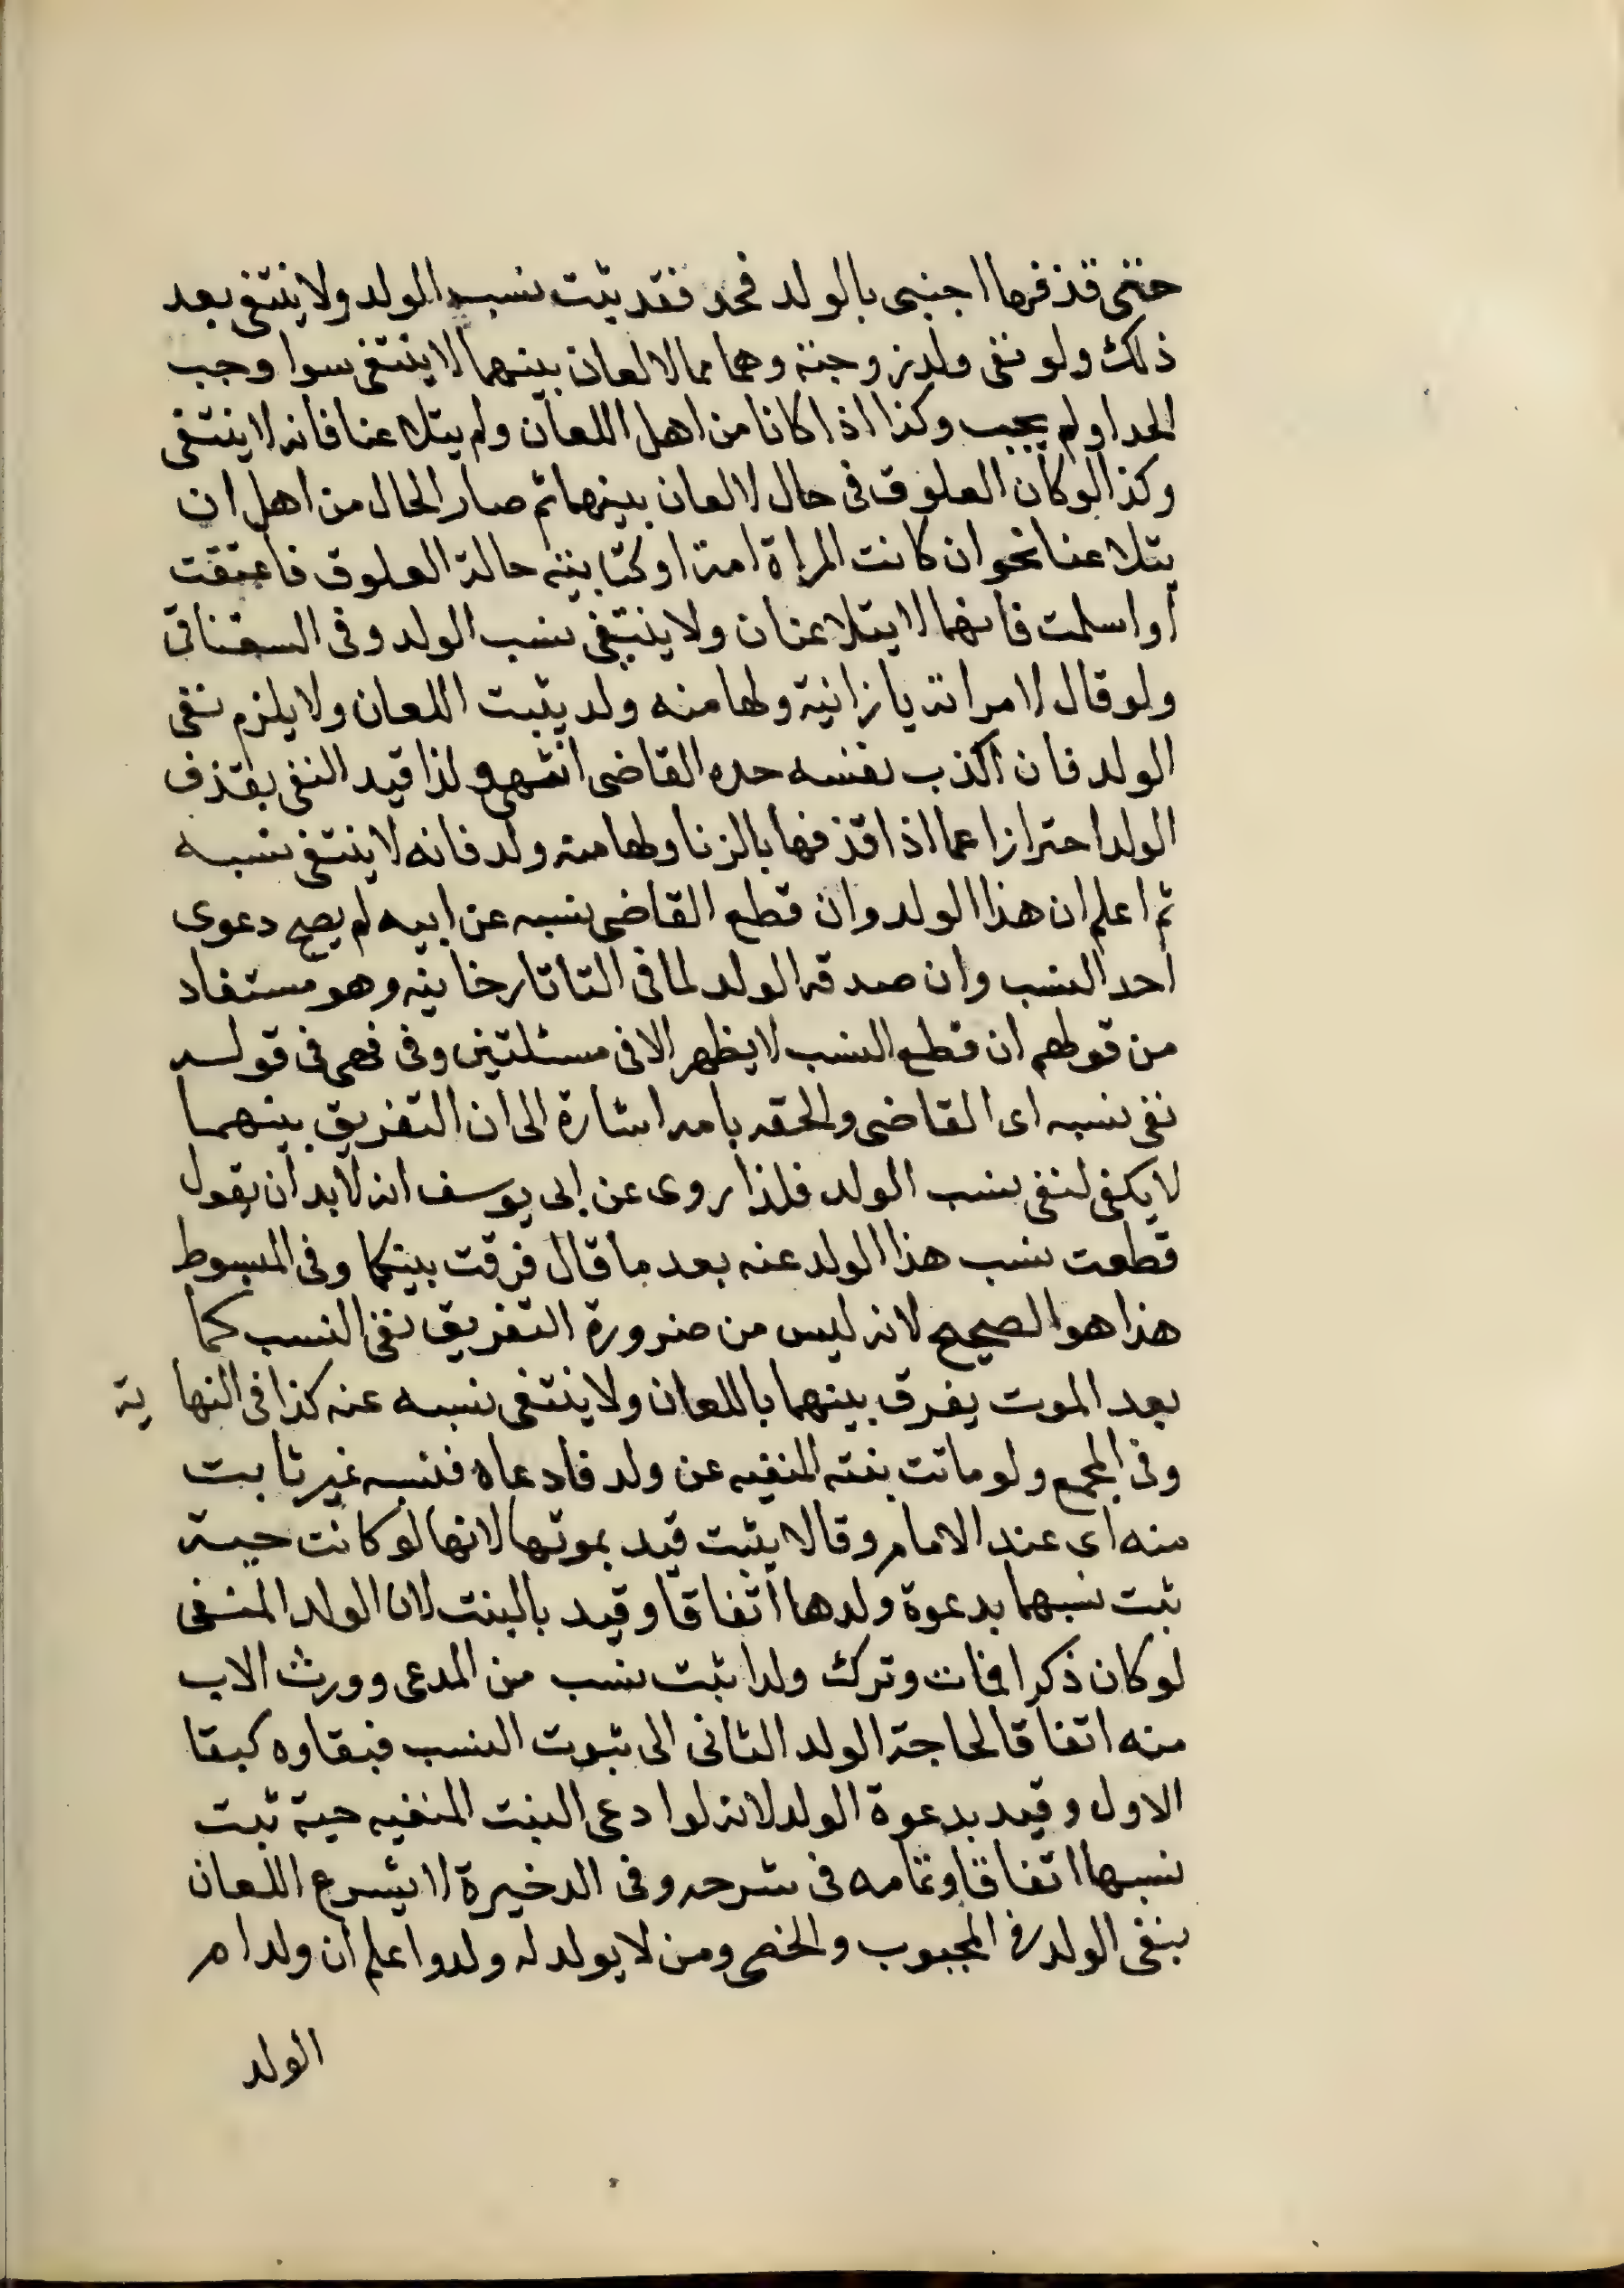 حتى قذفها اجنبى بالولد فحد فقد ثبت نسب الولد ولا ينتفى بعد
ذلك ولو نفى ولد زوجته وهما مما لا لعان بينهما لا ينتفى سوا وجب
الحد او لم يجب وكذا اذا كانا من اهل اللعان ولم يتلاعنا فانه لا ينتفى
وكذا لو كان العلوق فى حال لا لعان بينهما ثم صار الحال من اهل ان
يتلاعنا نحو ان كانت المراة امة او كتابية حالة العلوق فاعتقت
او اسلمت فانهما لا يتلاعنان ولا ينتفى نسب الولد وفى السغناقى
ولو قال لامراته يا زانية ولها منه ولد يثبت اللعان ولا يلزم نفى
الولد فان اكذب نفسه حده القاضى انتهى ولذا قيد النفى بقذف
الولد احترازا عما اذا قذفها بالزنا ولها منه ولد فانه لا ينتفى نسبه
ثم اعلم ان هذا الولد وان قطع القاضى نسبه عن ابيه لم يصح دعوى
احد النسب وان صدقه الولد لما فى التاتارخانيه وهو مستفاد
من قولهم ان قطع النسب لا يظهر الا فى مسئلتين وفى فهمى فى قوله
نفى نسبه اى القاضى والحقه بامه اشارة الى ان التفريق بينهما
لا يكفى لنفى نسب الولد فلذا روى عن ابى يوسف انه لابد ان يقول
قطعت نسب هذا الولد عنه بعد ما قال فرقت بينكما وفى المبسوط
هذا هو الصحيح لانه ليس من ضرورة التفريق نفى النسب كما
بعد الموت يفرق بينهما باللعان ولا ينتفى نسبه عنه كذا فى النهاية
وفى المجمع ولو ماتت بنته المنفيه عن ولد فادعاه فنسبه غير ثابت
منه اى عند الامام وقالا يثبت قيد بموتها لانها لو كانت حية
ثبت نسبها بدعوة ولدها اتفاقا وقيد بالبنت لان الولد المنفى
لو كان ذكرا فمات وترك ولدا ثبت نسب من المدعى وورث الاب
منه اتفاقا لحاجة الولد الثانى الى ثبوت النسب فبقاوه كبقا
الاول وقيد بدعوة الولد لانه لو ادعى البنت المنفيه حية ثبت
نسبها اتفاقا وتمامه فى شرحه وفى الدخيرة لا يشرع اللعان
بنفى الولد فى المجبوب والخصى ومن لا يولد له ولد واعلم ان ولد ام
الولد